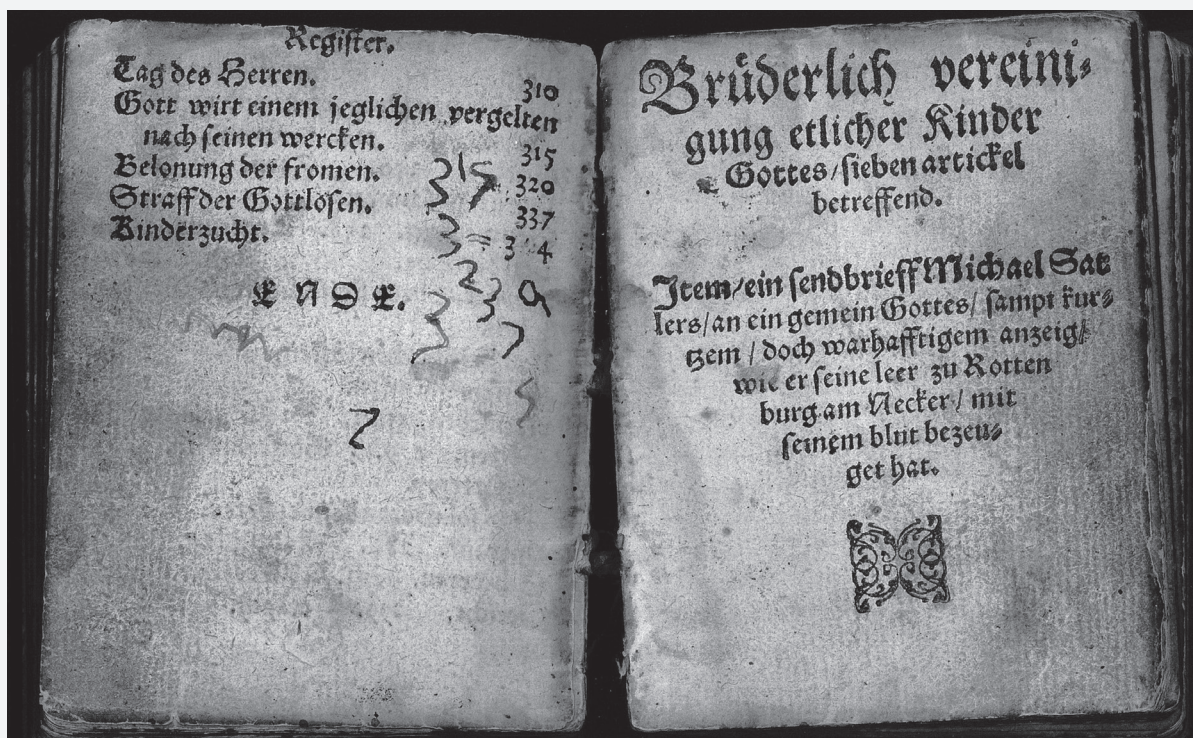 Register.
Tag des Herren. 310
Gott wirt einem jeglichen vergelten
nach seinen wercken. 315
Belonung der fromen. 320
Straff der Gottlosen. 337
Kinderzucht.
ENDE.
Brüderlich vereini⸗
gung etlicher Kinder
Gottes/sieben artickel
betreffend.
Item/ein sendbrieff Michael Sat
lers/an ein gemein Gottes/ sampt kur⸗
tzem / doch warhafftigem anzeig/
wie er seine leer zu Rotten
burg am Necker/ mit
seinem blut bezeu⸗
get hat.